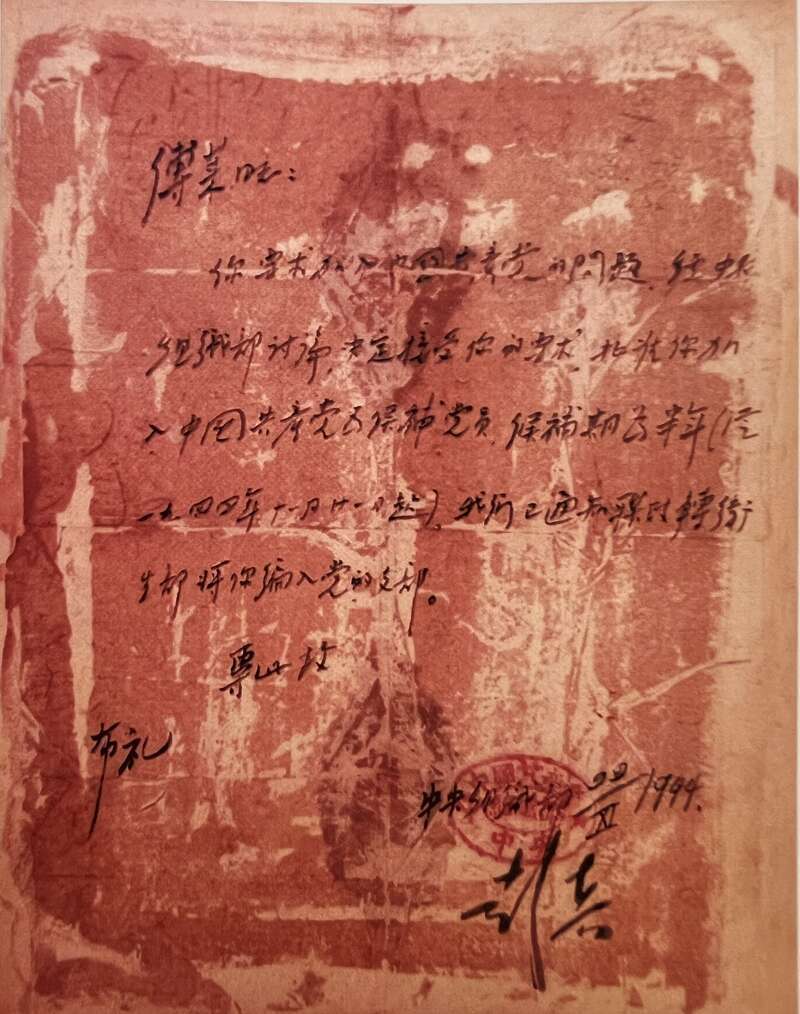 傅莱同志：
你要求加入中国共产党的问题，经中央
组织部讨论，决定接受你的要求，批准你加
入中国共产党为候补党员，候补期为半年（从
一九四四年十一月廿一日起），我们已通知联政转衛
生部将你编入党的支部。
專此 致
布礼
中央组织部 22/XI 1944.